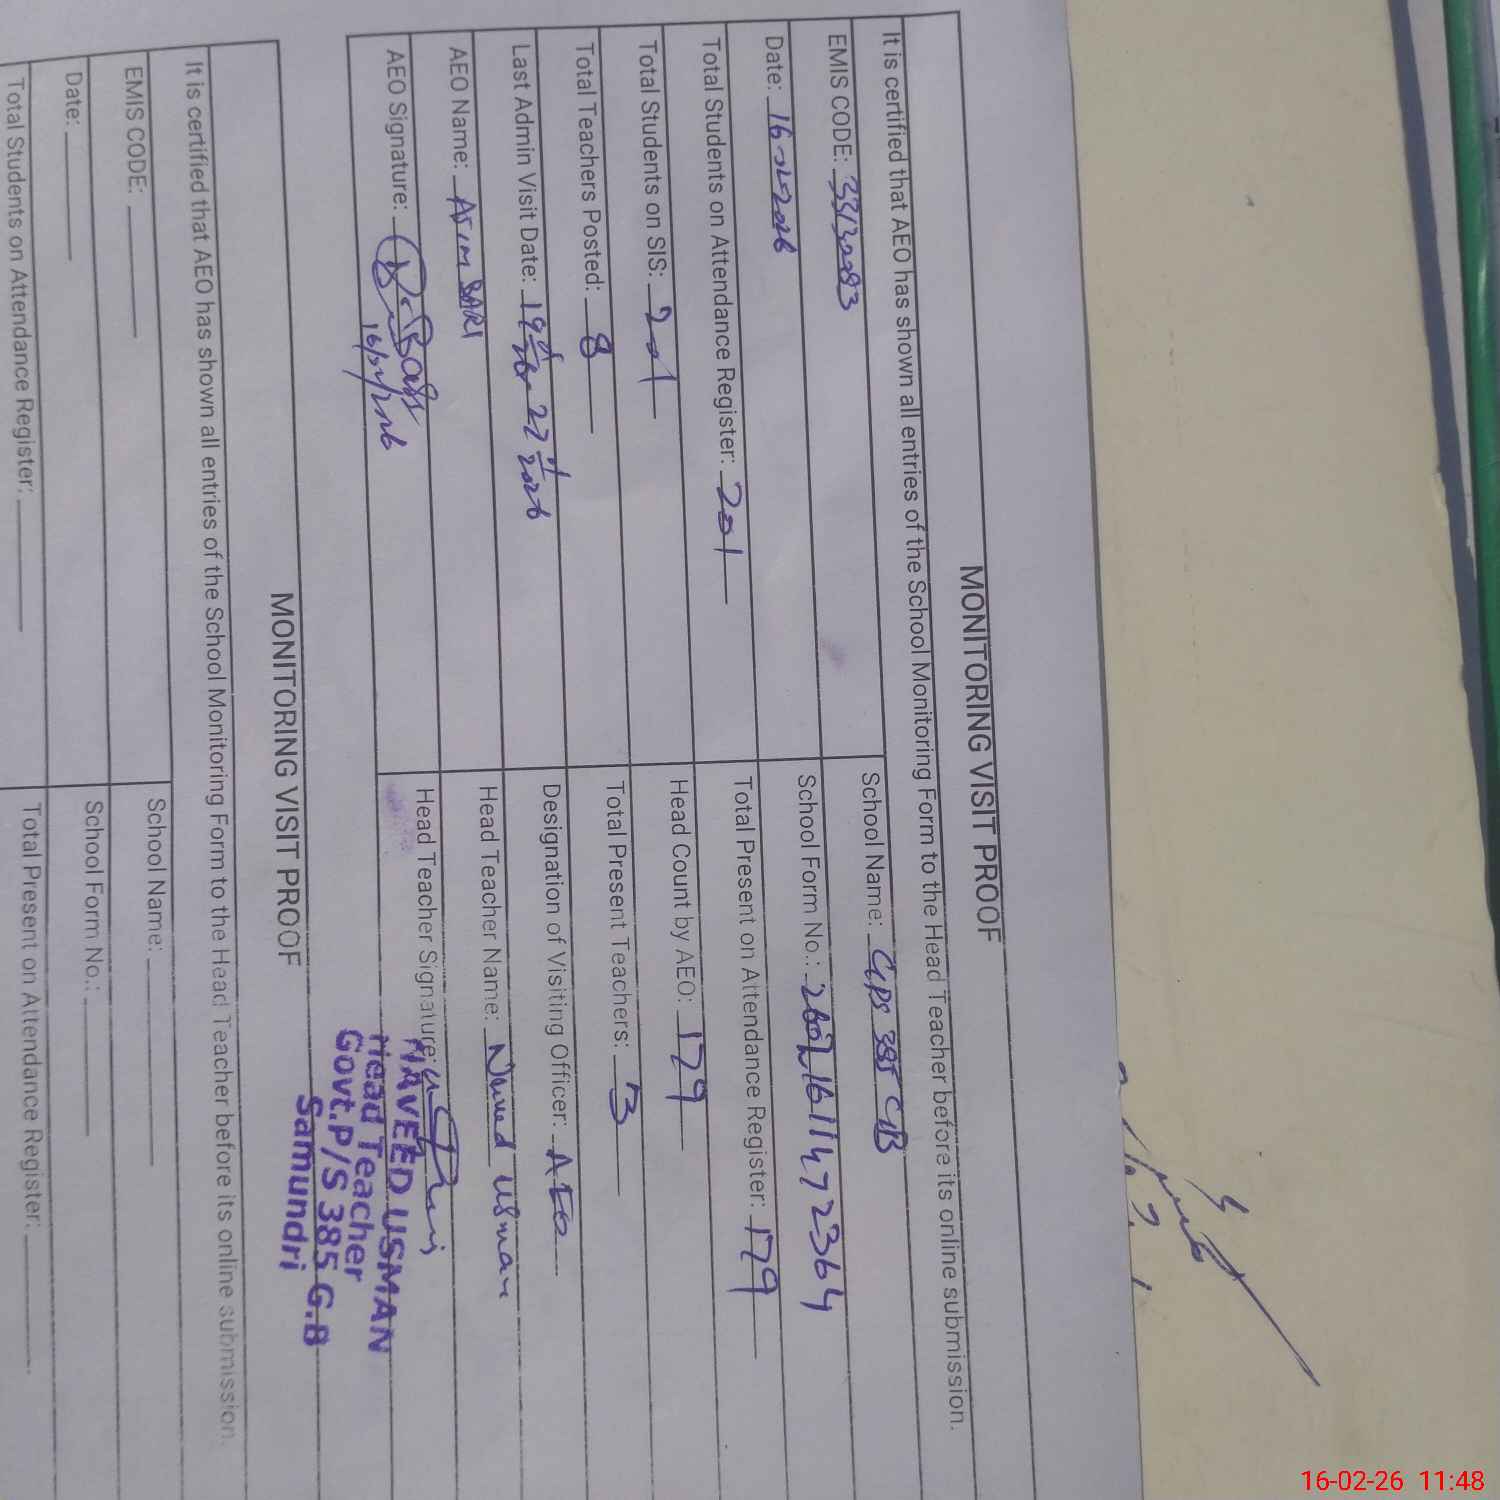 MONITORING VISIT PROOF
It is certified that AEO has shown all entries of the School Monitoring Form to the Head Teacher before its online submission.
EMIS CODE: 33130283 School Name: GPS 385 GB
Date: 16-2-2026 School Form No.: 26021611472364
Total Students on Attendance Register: 201 Total Present on Attendance Register: 179
Total Students on SIS: 201 Head Count by AEO: 179
Total Teachers Posted: 8 Total Present Teachers:
Last Admin Visit Date: 2026 Designation of Visiting Officer: AEO
AEO Name: Asim BARI Head Teacher Name: Naveed Usman
AEO Signature: 16/2/2026 Head Teacher Signature:
NAVEED USMAN
Head Teacher
Govt.P/S 385 G.B
Samundri
MONITORING VISIT PROOF
It is certified that AEO has shown all entries of the School Monitoring Form to the Head Teacher before its online submission.
EMIS CODE: School Name:
Date: School Form No.:
Total Students on Attendance Register: Total Present on Attendance Register:
16-02-26 11:48